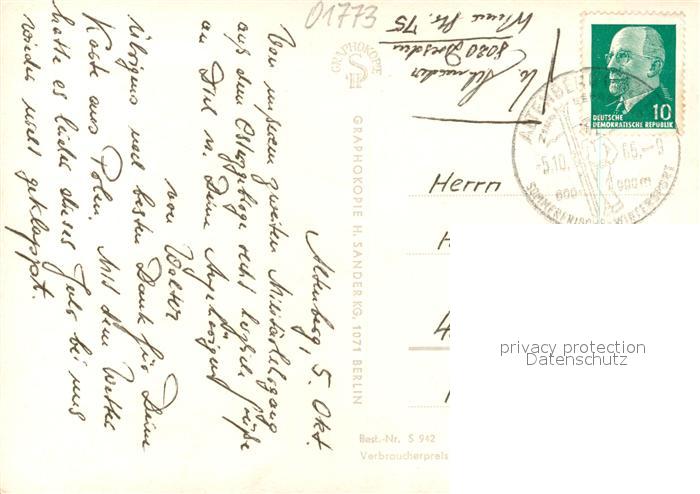 01773
Altenberg, 5. Okt.
Von unserem zweiten Militärlehrgang
aus dem Osterzgebirge recht herzliche Grüße
an Dich u. Deine Angehörigen
von Walter
Übrigens noch besten Dank für Deine
Karte aus Polen. Mit dem Wetter
hatte es leider dieses Jahr bei uns
wieder nicht geklappt.
GRAPHOKOPIE
GRAPHOKOPIE H. SANDER KG, 1071 BERLIN
Schneider
8020 Dresden
Str. 75
DEUTSCHE
DEMOKRATISCHE REPUBLIK
10
ALTENBERG
-5.10.
65.-9
600-
900m
SOMMERFRISCHE WINTERSPORT
Herrn
H
4
privacy protection
Datenschutz
Best.-Nr. S 942
Verbraucherpreis